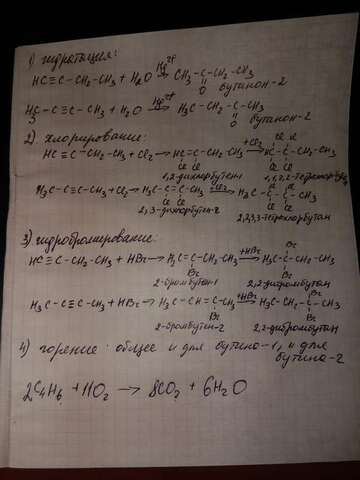 1) гидратация:
HC≡C-CH2-CH3 + H2O →Hg2+ CH3-C-CH2-CH3
O бутанон-2
H3C-C≡C-CH3 + H2O →Hg2+ H3C-CH2-C-CH3
O бутанон-2
2) хлорирование:
HC≡C-CH2-CH3 + Cl2 → HC=C-CH2-CH3 +Cl2→ HC-C-CH2-CH3
Cl Cl Cl Cl
Cl Cl
1,2-дихлорбутен1 1,1,2,2-тетрахлорбутан
H3C-C≡C-CH3 + Cl2 → H3C-C=C-CH3 +Cl2→ H3C-C-C-CH3
Cl Cl Cl Cl
Cl Cl
2,3-дихлорбутен-2 2,2,3,3-тетрахлорбутан
3) гидробромирование:
HC≡C-CH2-CH3 + HBr → H2C=C-CH2-CH3 +HBr→ H3C-C-CH2-CH3
Br Br
Br
2-бромбутен1 2,2-дибромбутан
H3C-C≡C-CH3 + HBr → H3C-CH=C-CH3 +HBr→ H3C-CH2-C-CH3
Br Br
Br
2-бромбутен-2 2,2-дибромбутан
4) горение: общее и для бутина-1, и для
бутина-2
2C4H6 + 11O2 → 8CO2 + 6H2O